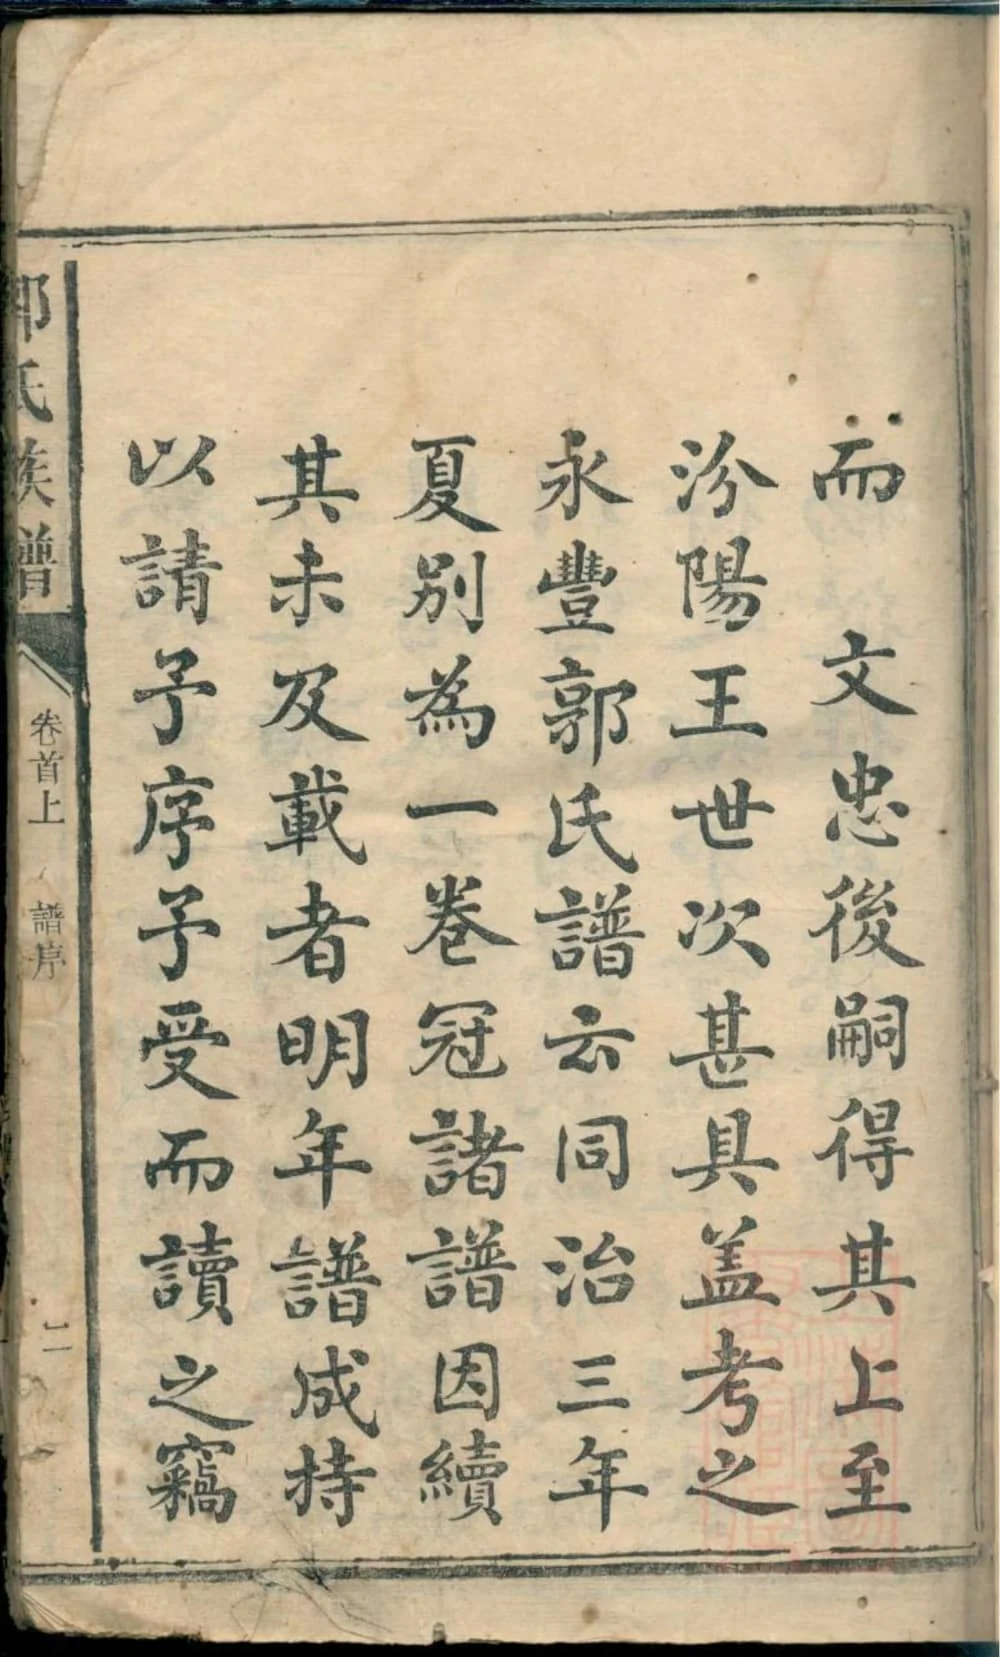 而　文忠後嗣得其上至
汾陽王世次甚具盖考之
永豐郭氏譜云同治三年
夏別為一卷冠諸譜因續
其未及載者明年譜成持
以請予序予受而讀之竊
郭氏族譜
卷首上
譜序
二